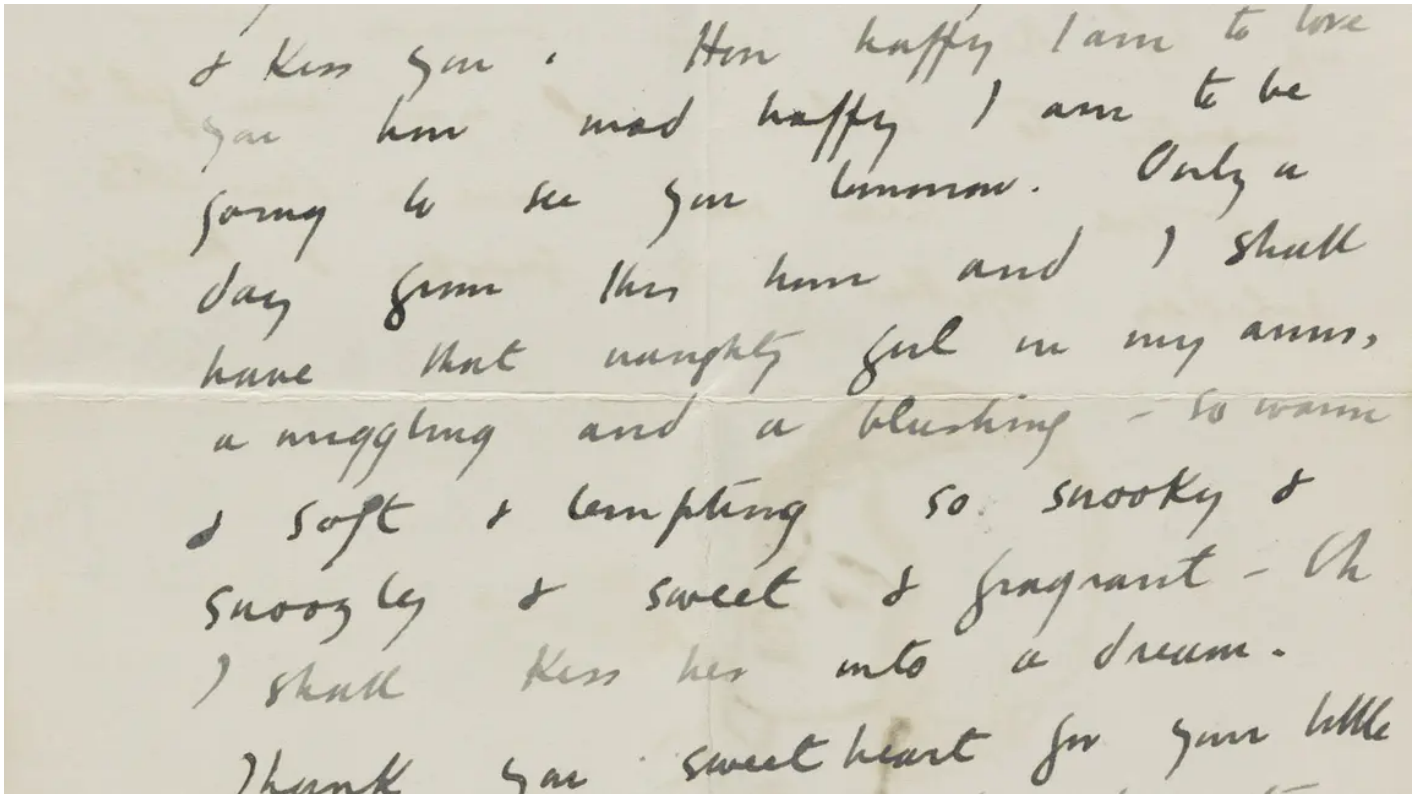 & Kiss you. How happy I am to love
you how mad happy I am to be
going to see you tomorrow. Only a
day from this hour and I shall
have that naughty girl in my arms,
a wriggling and a blushing – so warm
& soft & tempting so snooky &
snoozley & sweet & fragrant – Oh
I shall Kiss her into a dream.
Thank you sweetheart for your little